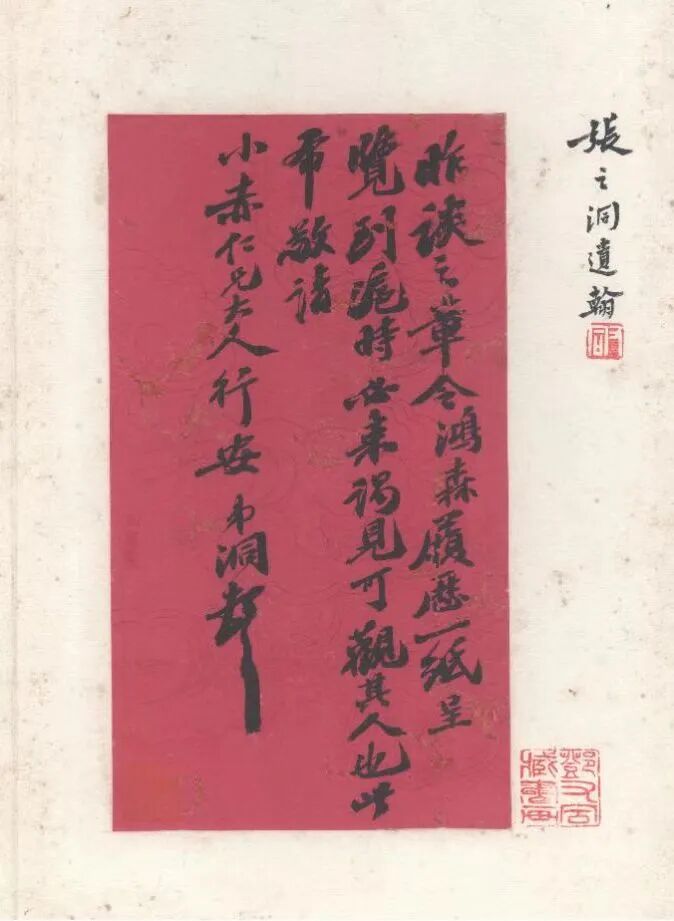 張之洞遺翰
昨談之章令鴻森履歷一紙呈
覽到滬時必來謁見可觀其人也此
布敬請
小赤仁兄大人行安 弟洞頓